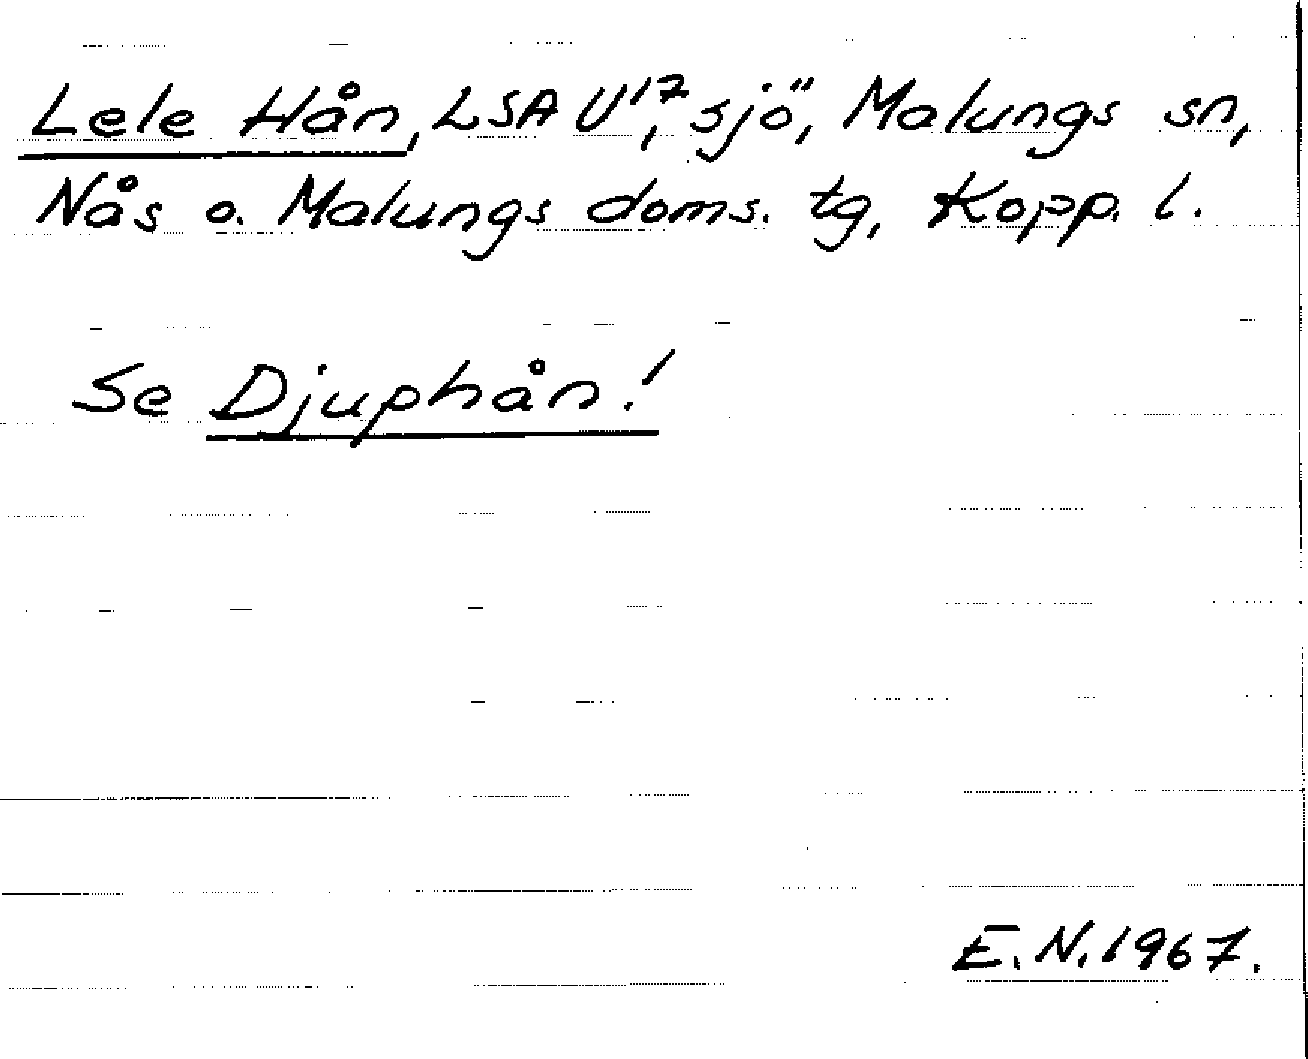 Lele Hån, LSA U¹,⁷ sjö, Malungs sn,
Nås o. Malungs doms. tg, Kopp. l.
Se Djuphån!
E.N. 1967.